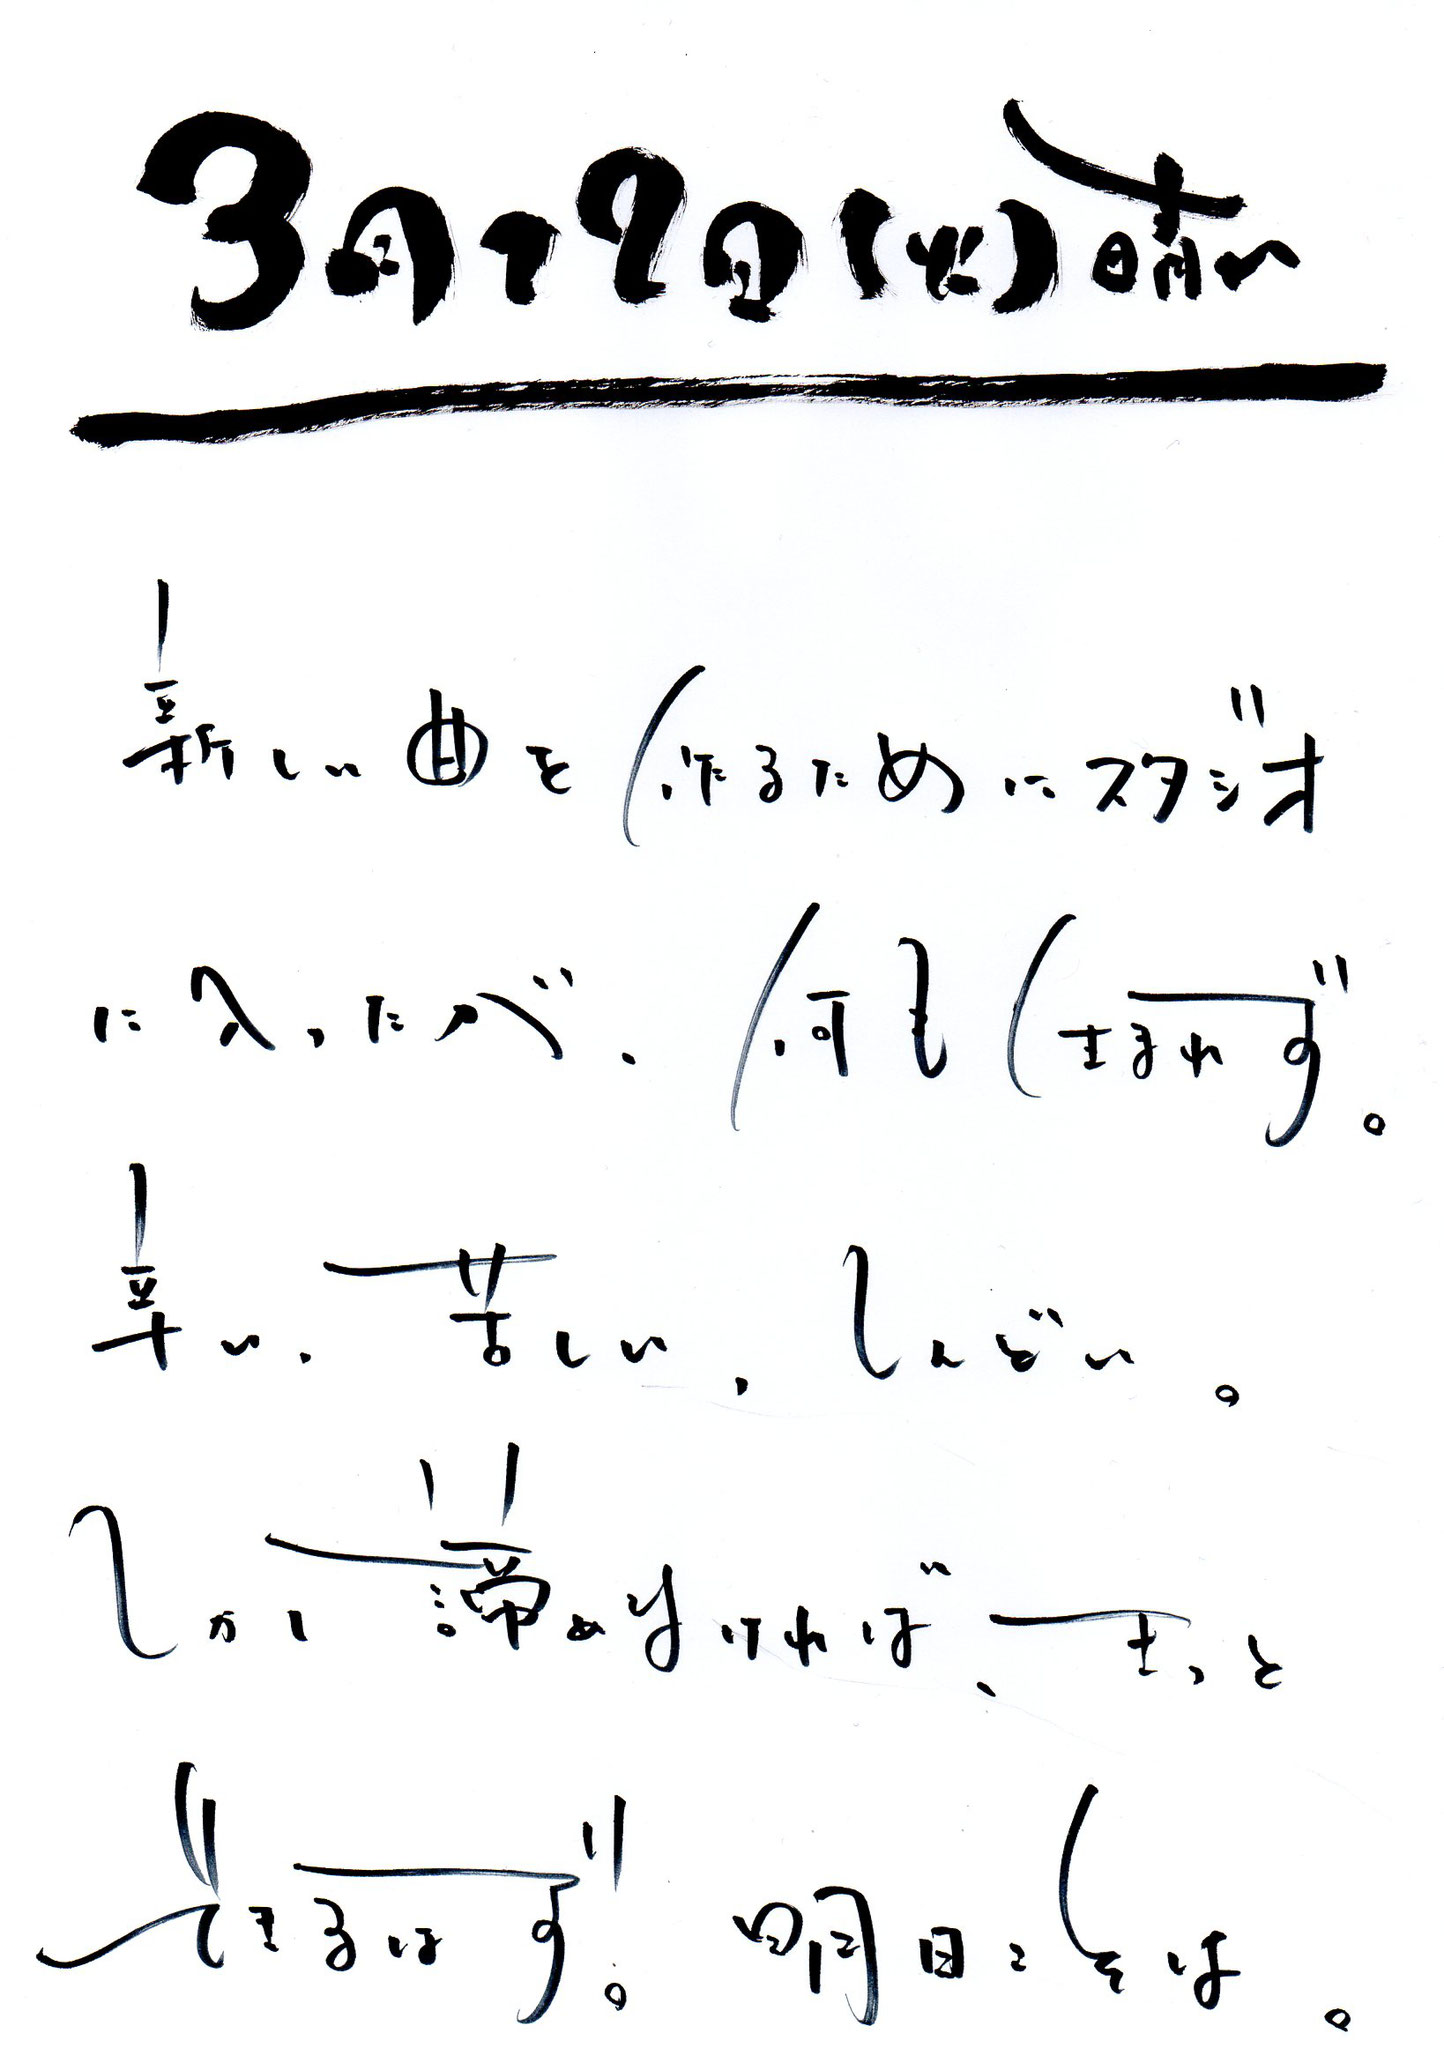 3月19日(火)晴れ
新しい曲を作るためにスタジオ
に入ったが、何も生まれず。
辛い、苦しい、しんどい。
しかし諦めなければ、きっと
できるはず。明日こそは。